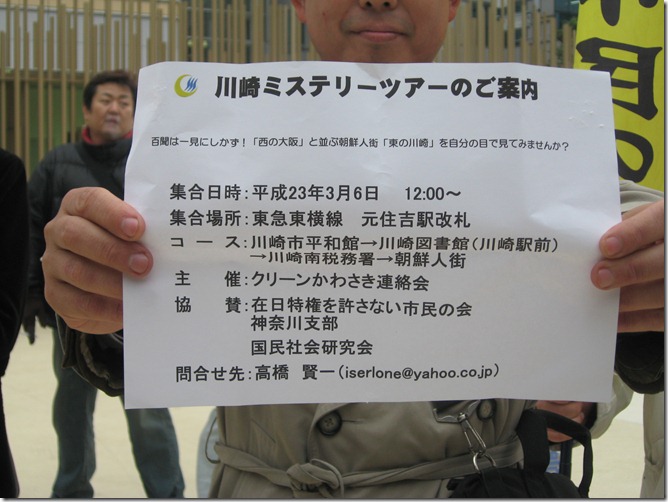 川崎ミステリーツアーのご案内
百聞は一見にしかず！「西の大阪」と並ぶ朝鮮人街「東の川崎」を自分の目で見てみませんか？
集合日時：平成23年3月6日　12:00～
集合場所：東急東横線　元住吉駅改札
コース：川崎市平和館→川崎図書館（川崎駅前）
→川崎南税務署→朝鮮人街
主　催：クリーンかわさき連絡会
協　賛：在日特権を許さない市民の会
神奈川支部
国民社会研究会
問合せ先：高橋　賢一（iserlone@yahoo.co.jp）